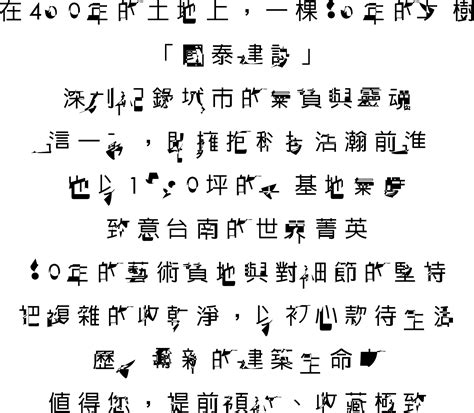 在400年的土地上，一棵 0年的 樹
「國泰建設」
深刻記錄城市的氣質與靈魂
這一 ，即擁抱科技浩瀚前進
也以 坪的 基地氣
致意台南的世界菁英
0年的藝術質地與對細節的堅持
把複雜的收乾淨，以初心款待生活
歷 的建築生命
值得您，提前預約、收藏極致